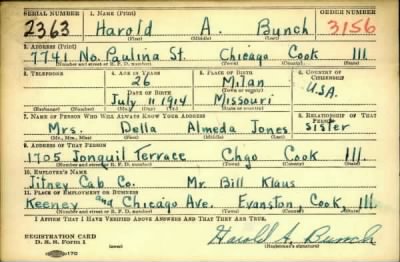 SERIAL NUMBER 1. NAME (Print) ORDER NUMBER
2363 Harold A. Bunch 3156
(First) (Middle) (Last)
2. ADDRESS (Print)
7741 No. Paulina St. Chicago Cook Ill.
(Number and street or R. F. D. number) (Town) (County) (State)
3. TELEPHONE 4. AGE IN YEARS 5. PLACE OF BIRTH 6. COUNTRY OF CITIZENSHIP
26 Milan
(Town or county)
DATE OF BIRTH
July 11 1914 Missouri U.S.A.
(Exchange) (Number) (Mo.) (Day) (Yr.) (State or country)
7. NAME OF PERSON WHO WILL ALWAYS KNOW YOUR ADDRESS 8. RELATIONSHIP OF THAT PERSON
Mrs. Della Almeda Jones Sister
(Mr., Mrs., Miss) (First) (Middle) (Last)
9. ADDRESS OF THAT PERSON
1705 Jonquil Terrace Chgo Cook Ill.
(Number and street or R. F. D. number) (Town) (County) (State)
10. EMPLOYER'S NAME
Jitney Cab Co. Mr. Bill Klaus
11. PLACE OF EMPLOYMENT OR BUSINESS
Keeney and Chicago Ave. Evanston, Cook, Ill.
(Number and street or R. F. D. number) (Town) (County) (State)
I AFFIRM THAT I HAVE VERIFIED ABOVE ANSWERS AND THAT THEY ARE TRUE.
REGISTRATION CARD
D. S. S. Form 1 (over) Harold A. Bunch
(Registrant's signature)